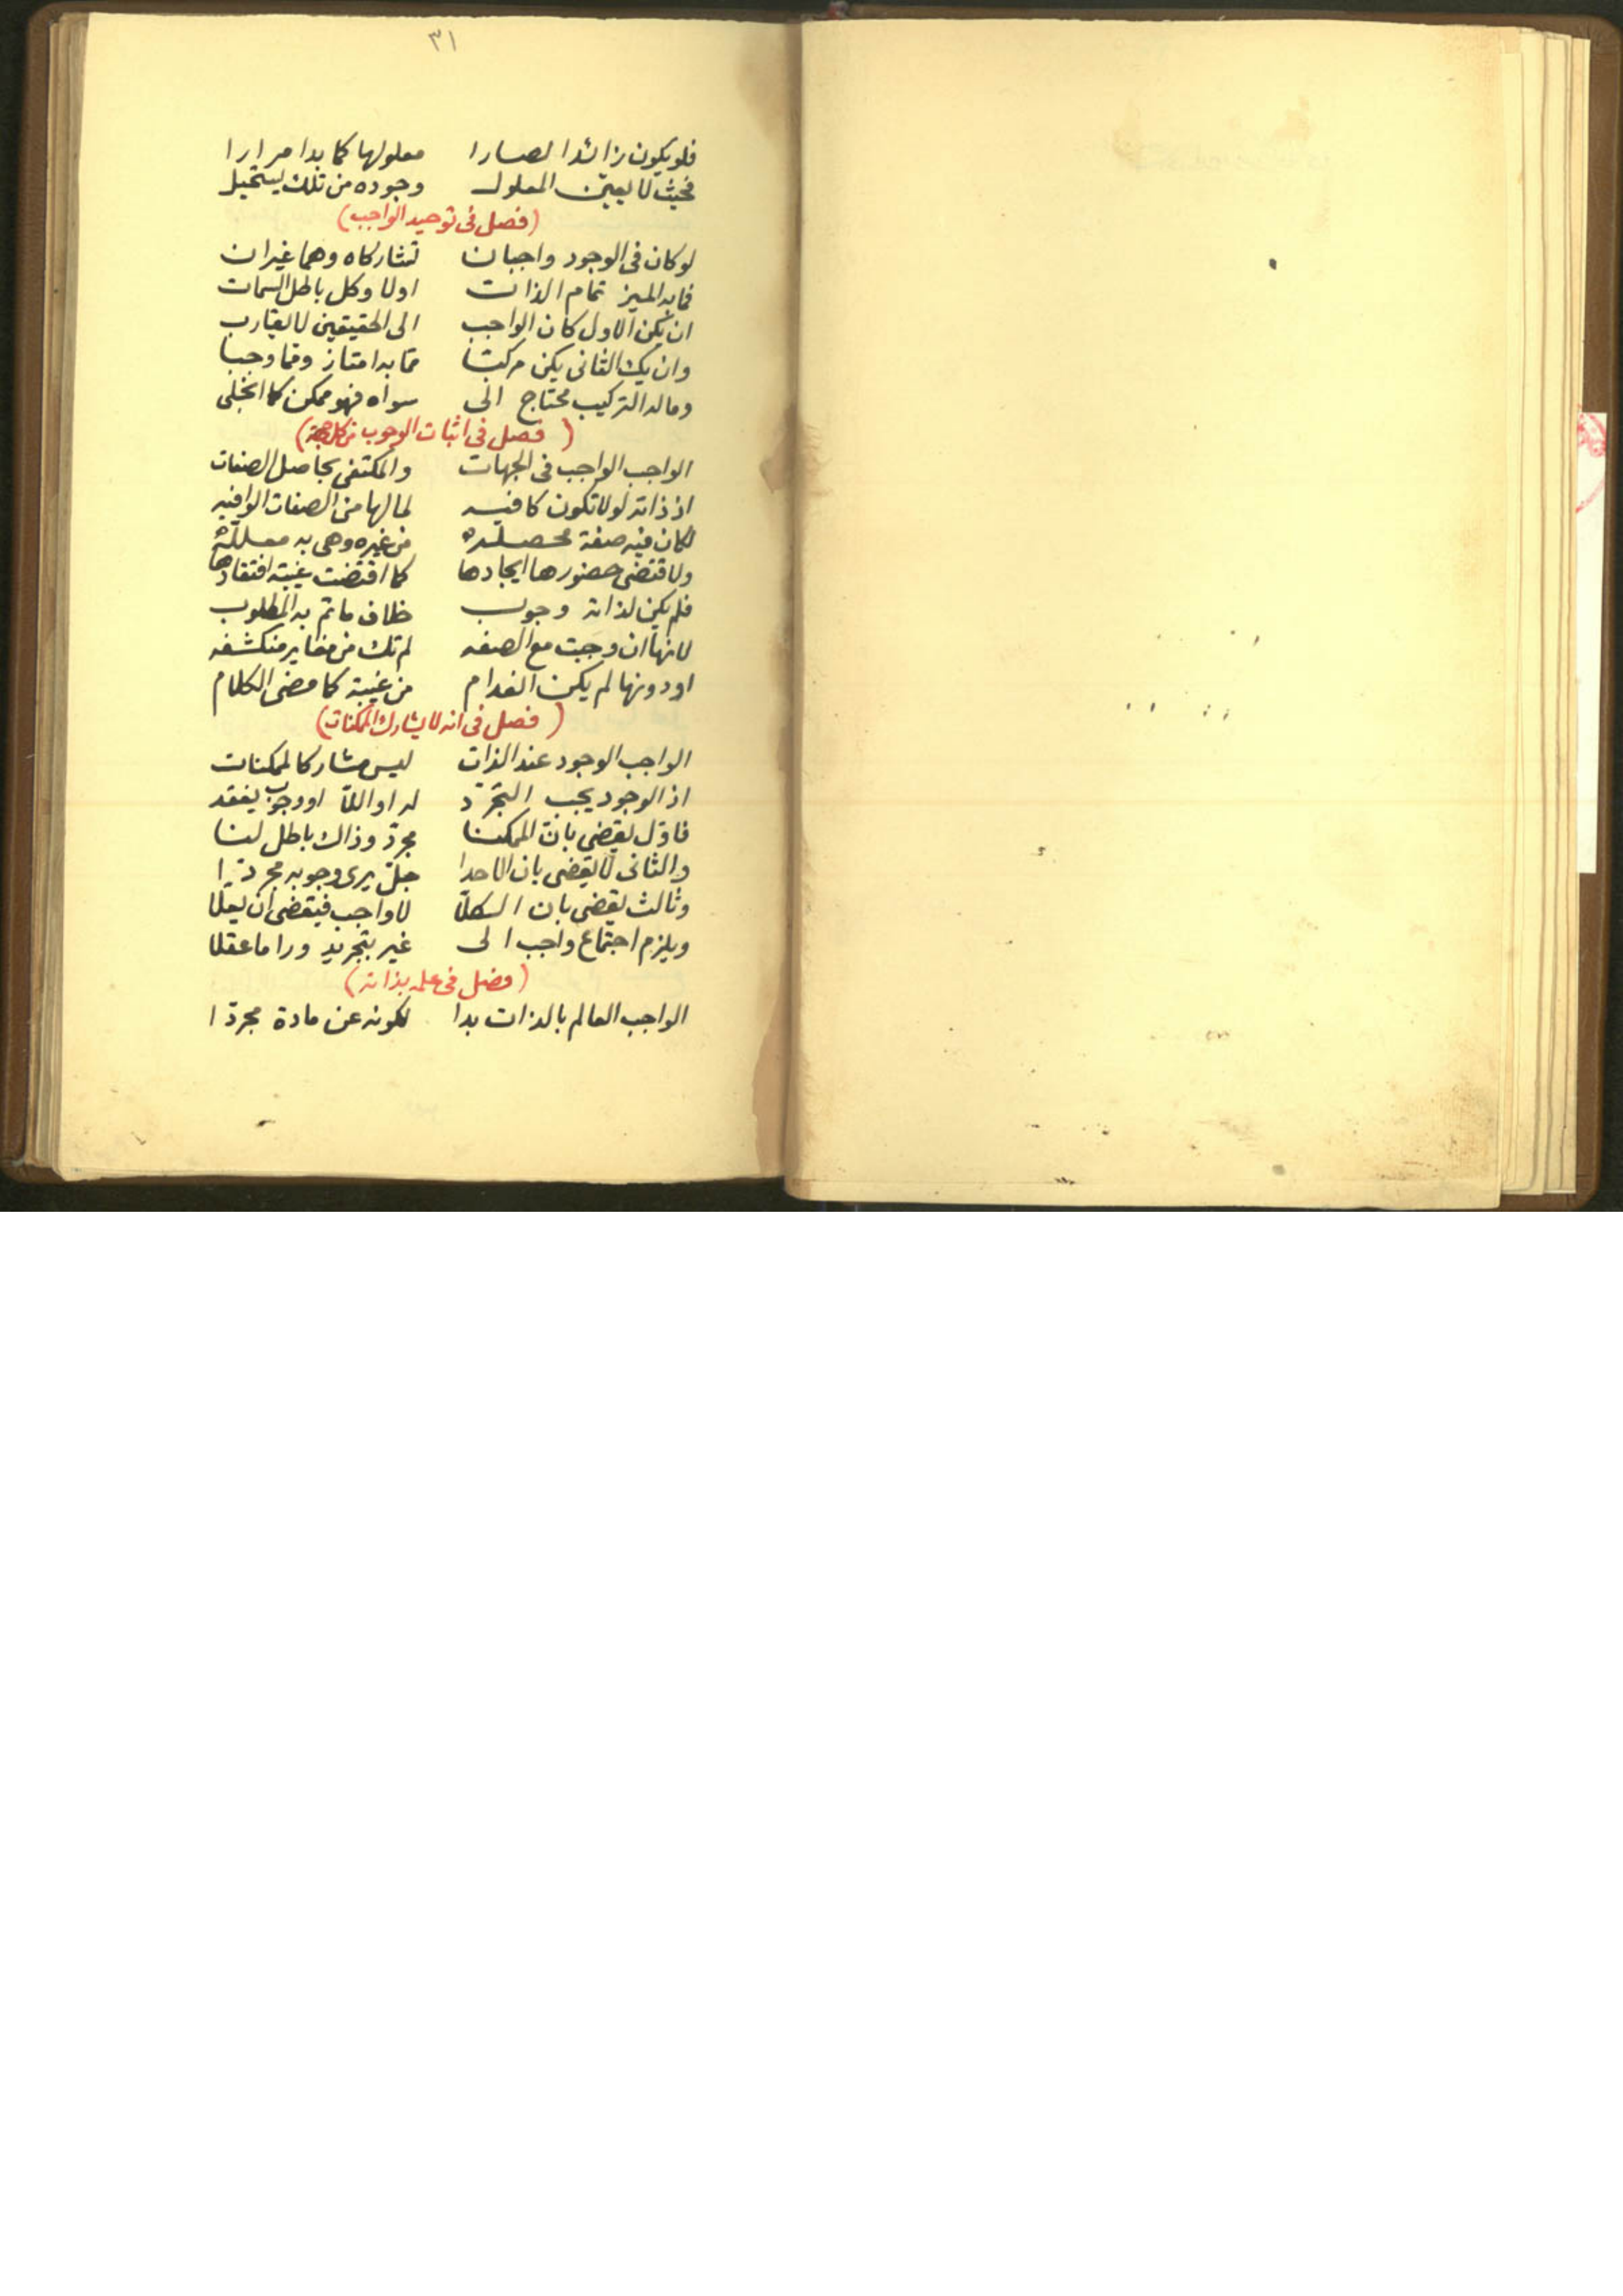 ٣١
فلو يكون زائدا لصارا معلولها كما بدا مرارا
فحيث لا يعين المعلول وجوده من تلك يستحيل
(فصل في توحيد الواجب)
لو كان في الوجود واجبان تشاركاه وهما غيران
فما به الميز تمام الذات اولا وكل باطل السمات
ان يكن الاول كان الواجب الى الحقيقين لا يقارب
وان يك الثاني يكن مركبا مما به امتاز ومما وجبا
وما له التركيب محتاج الى سواه فهو ممكن كما انجلى
(فصل في اثبات الوجوب من كل جهة)
الواجب الواجب في الجهات والمكتفي بحاصل الصفات
اذ ذاته لو لا تكون كافيه لما لها من الصفات الوافيه
لكان فيه صفة محصله من غيره وهي به معلله
ولاقتضى حضورها ايجادها كما اقتضت غيبته افتقادها
فلم يكن لذاته وجوب خلاف ما تم به المطلوب
لانها ان وجبت مع الصفه لم تك من مغاير منكشفه
او دونها لم يكن انعدام من غيبة كما مضى الكلام
(فصل في انه لا يشارك الممكنات)
الواجب الوجود عند الذات ليس مشاركا لممكنات
اذ الوجود يجب التجرّد له او اللّا او وجوب يفقد
فاوّل يقضي بان الممكنا مجرّد وذاك باطل لنا
والثاني لا يقضي بان الاحدا جلّ يرى وجوبه مجردا
وثالث يقضي بان الكلّا لا واجب فيقضى ان يعلّا
ويلزم اجتماع واجب الى غير بتجريد ورا ما عقلا
(فصل في علمه بذاته)
الواجب العالم بالذات بدا لكونه عن مادة مجرّدا